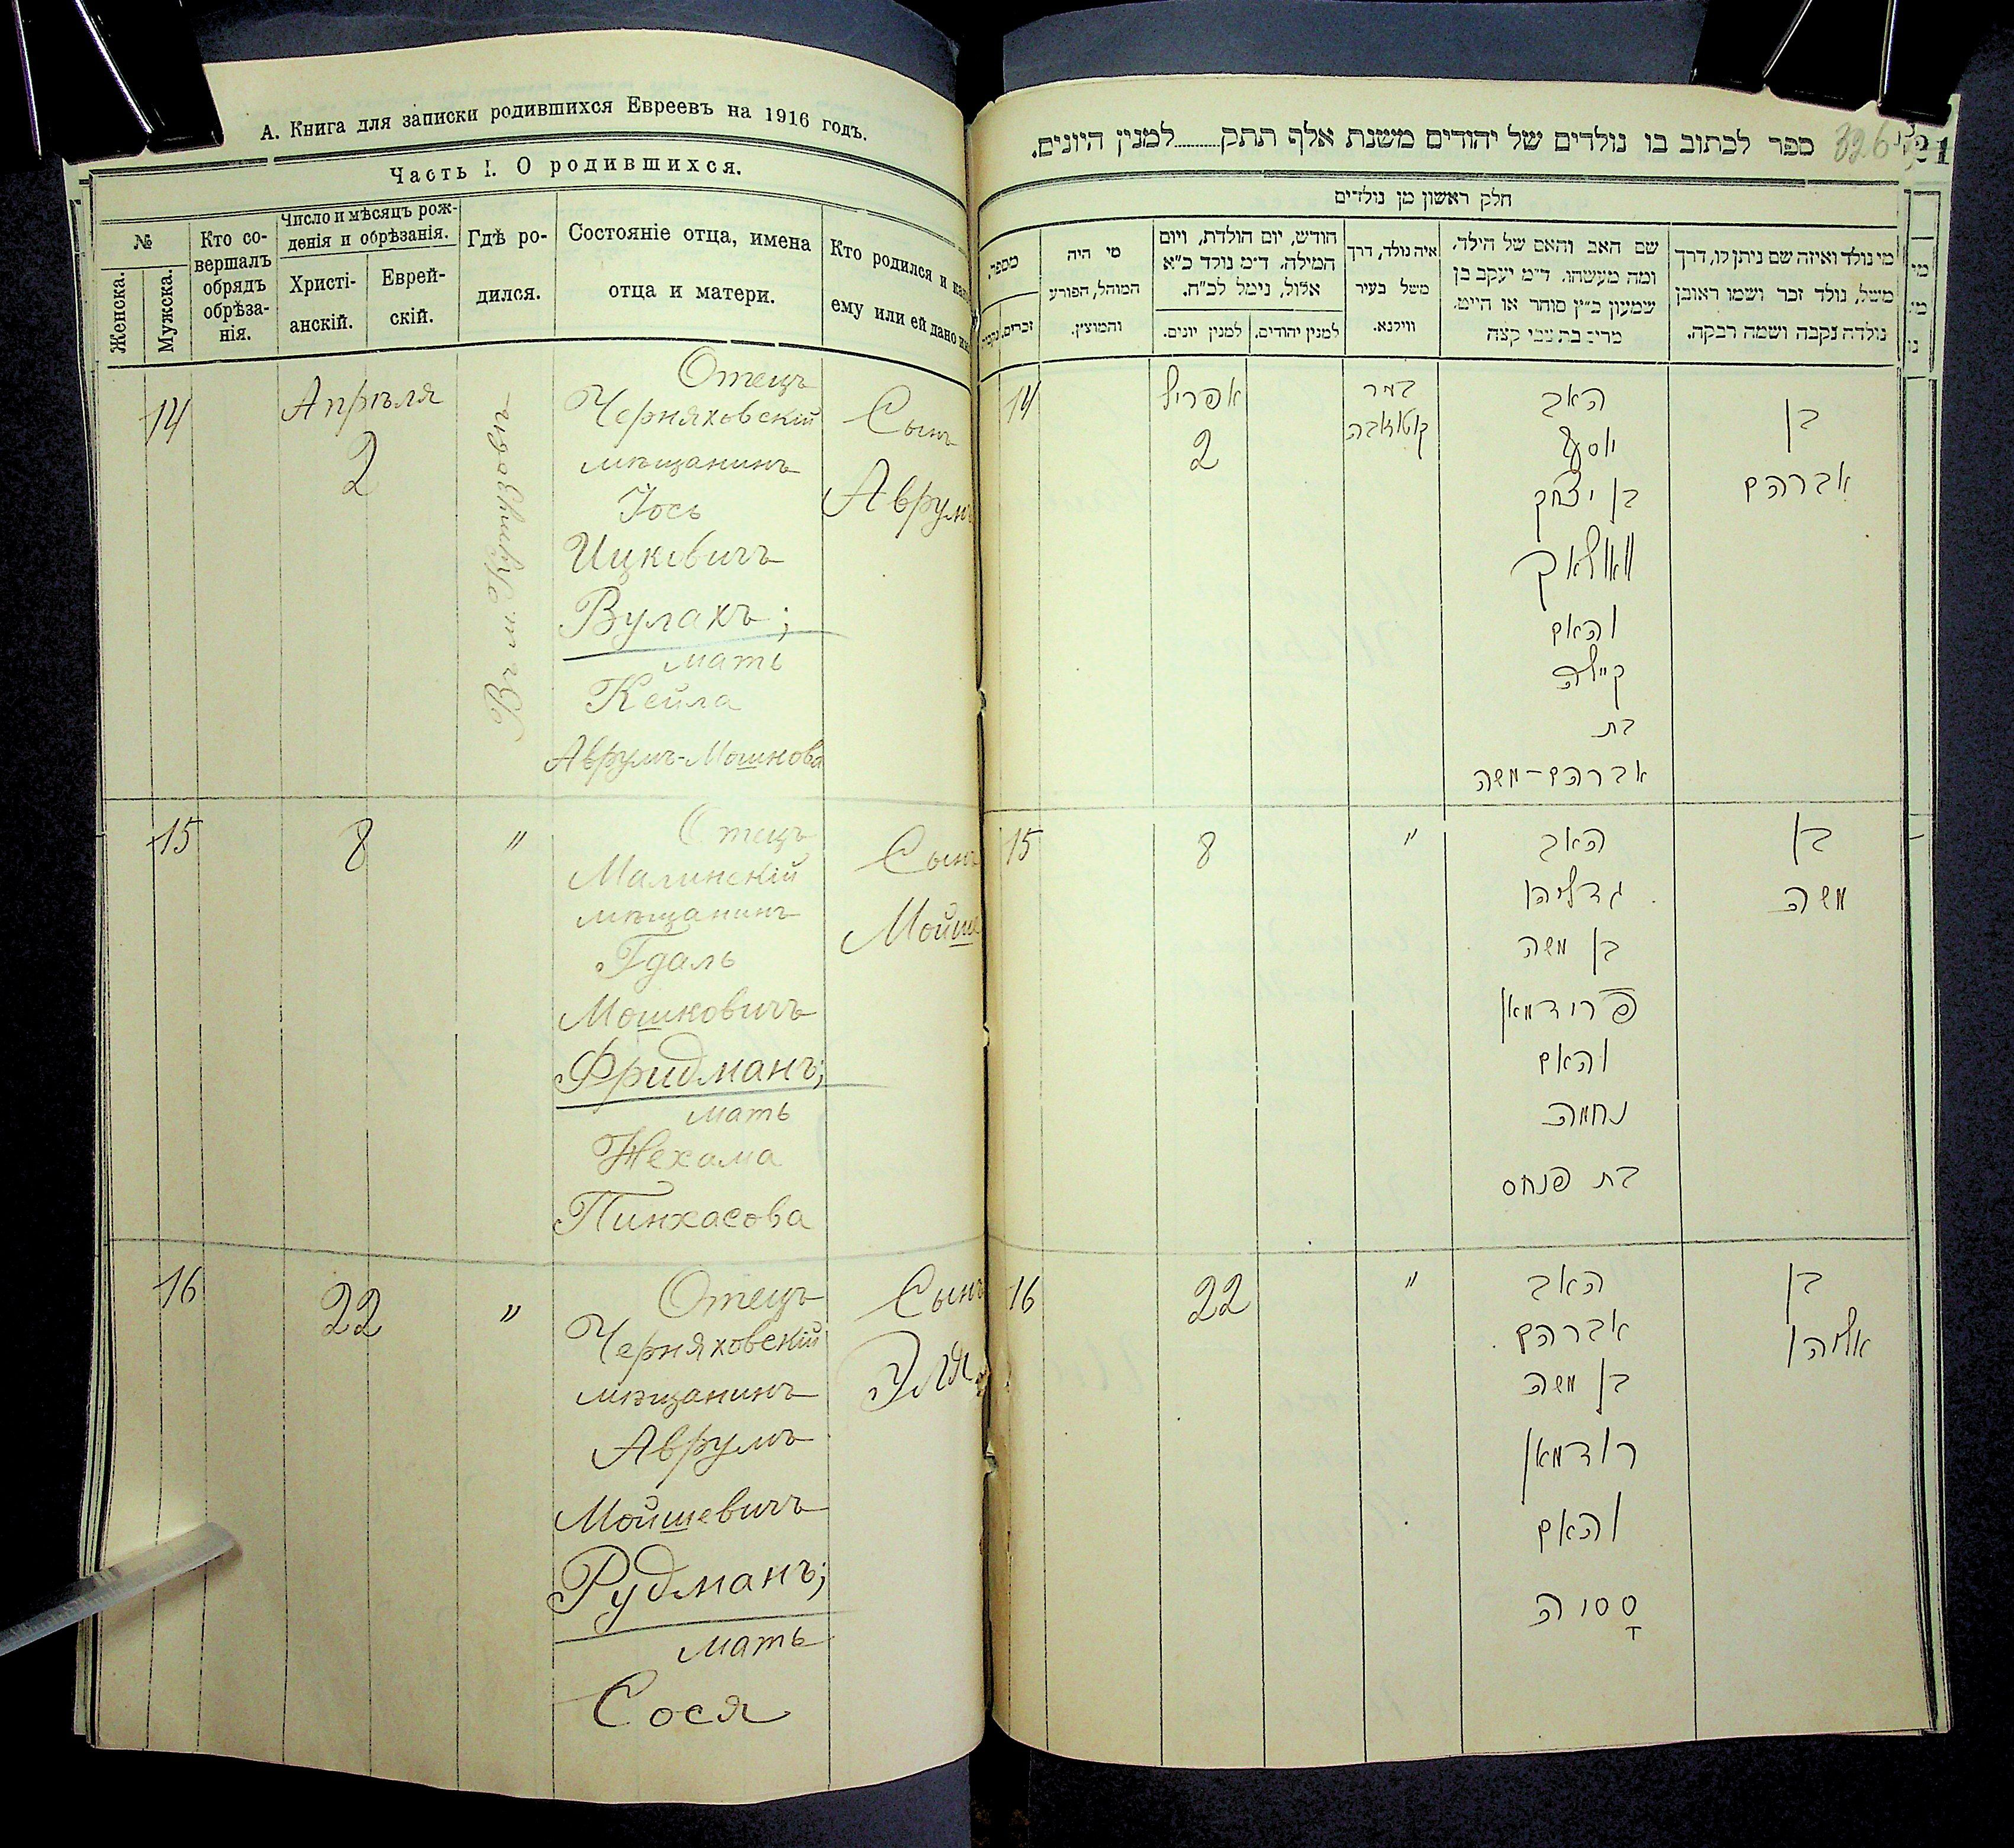 А. Книга для записки родившихся Евреевъ на 1916 годъ.
Часть I. О родившихся.
№
Женска.
Мужска.
Кто со-
вершалъ
обрядъ
обрѣза-
нія.
Число и мѣсяцъ рож-
денія и обрѣзанія.
Христі-
анскій.
Еврей-
скій.
Гдѣ ро-
дился.
Состояніе отца, имена
отца и матери.
Кто родился и как
ему или ей дано им
14
Апрѣля
2
Отецъ
Черняховскій
мѣщанинъ
Іось
Ицковичъ
Вулахъ;
мать
Кейла
Аврумъ-Мошкова
Сынъ
Аврумъ
15
8
"
Отецъ
Малинскій
мѣщанинъ
Гдаль
Мошковичъ
Фридманъ;
мать
Нехама
Пинхасова
Сынъ
Мойше
16
22
"
Отецъ
Черняховскій
мѣщанинъ
Аврумъ
Мойшевичъ
Рудманъ;
мать
Сося
Сынъ
Эля
ספר לכתוב בו נולדים של יהודים משנת אלף תתק.......למנין היונים.
326
21
חלק ראשון מן נולדים
מספר.
זכרים.
מי היה
המוהל, הפורע
והמוצץ.
חודש, יום הולדת, ויום
המילה. ד"מ נולד כ"א
אלול, נימל לכ"ח.
למנין יונים.
למנין יהודים.
איה נולד, דרך
משל בעיר
ווילנא.
שם האב והאם של הילד,
ומה מעשהו. ד"מ יעקב בן
שמעון כ"ץ סוחר או חייט.
מרים בת צבי קצה
מי נולד ואיזה שם ניתן לו, דרך
משל, נולד זכר ושמו ראובן
נולדה נקבה ושמה רבקה.
14
אפריל
2
האב
יוסף
בן יצחק
וואולאך
והאם
קיילה
בת
אברהם-משה
בן
אברהם
15
8
"
האב
גדליהו
בן משה
פרידמאן
והאם
נחמה
בת פנחס
בן
משה
16
22
"
האב
אברהם
בן משה
רודמאן
והאם
סָסיה
בן
אליהו